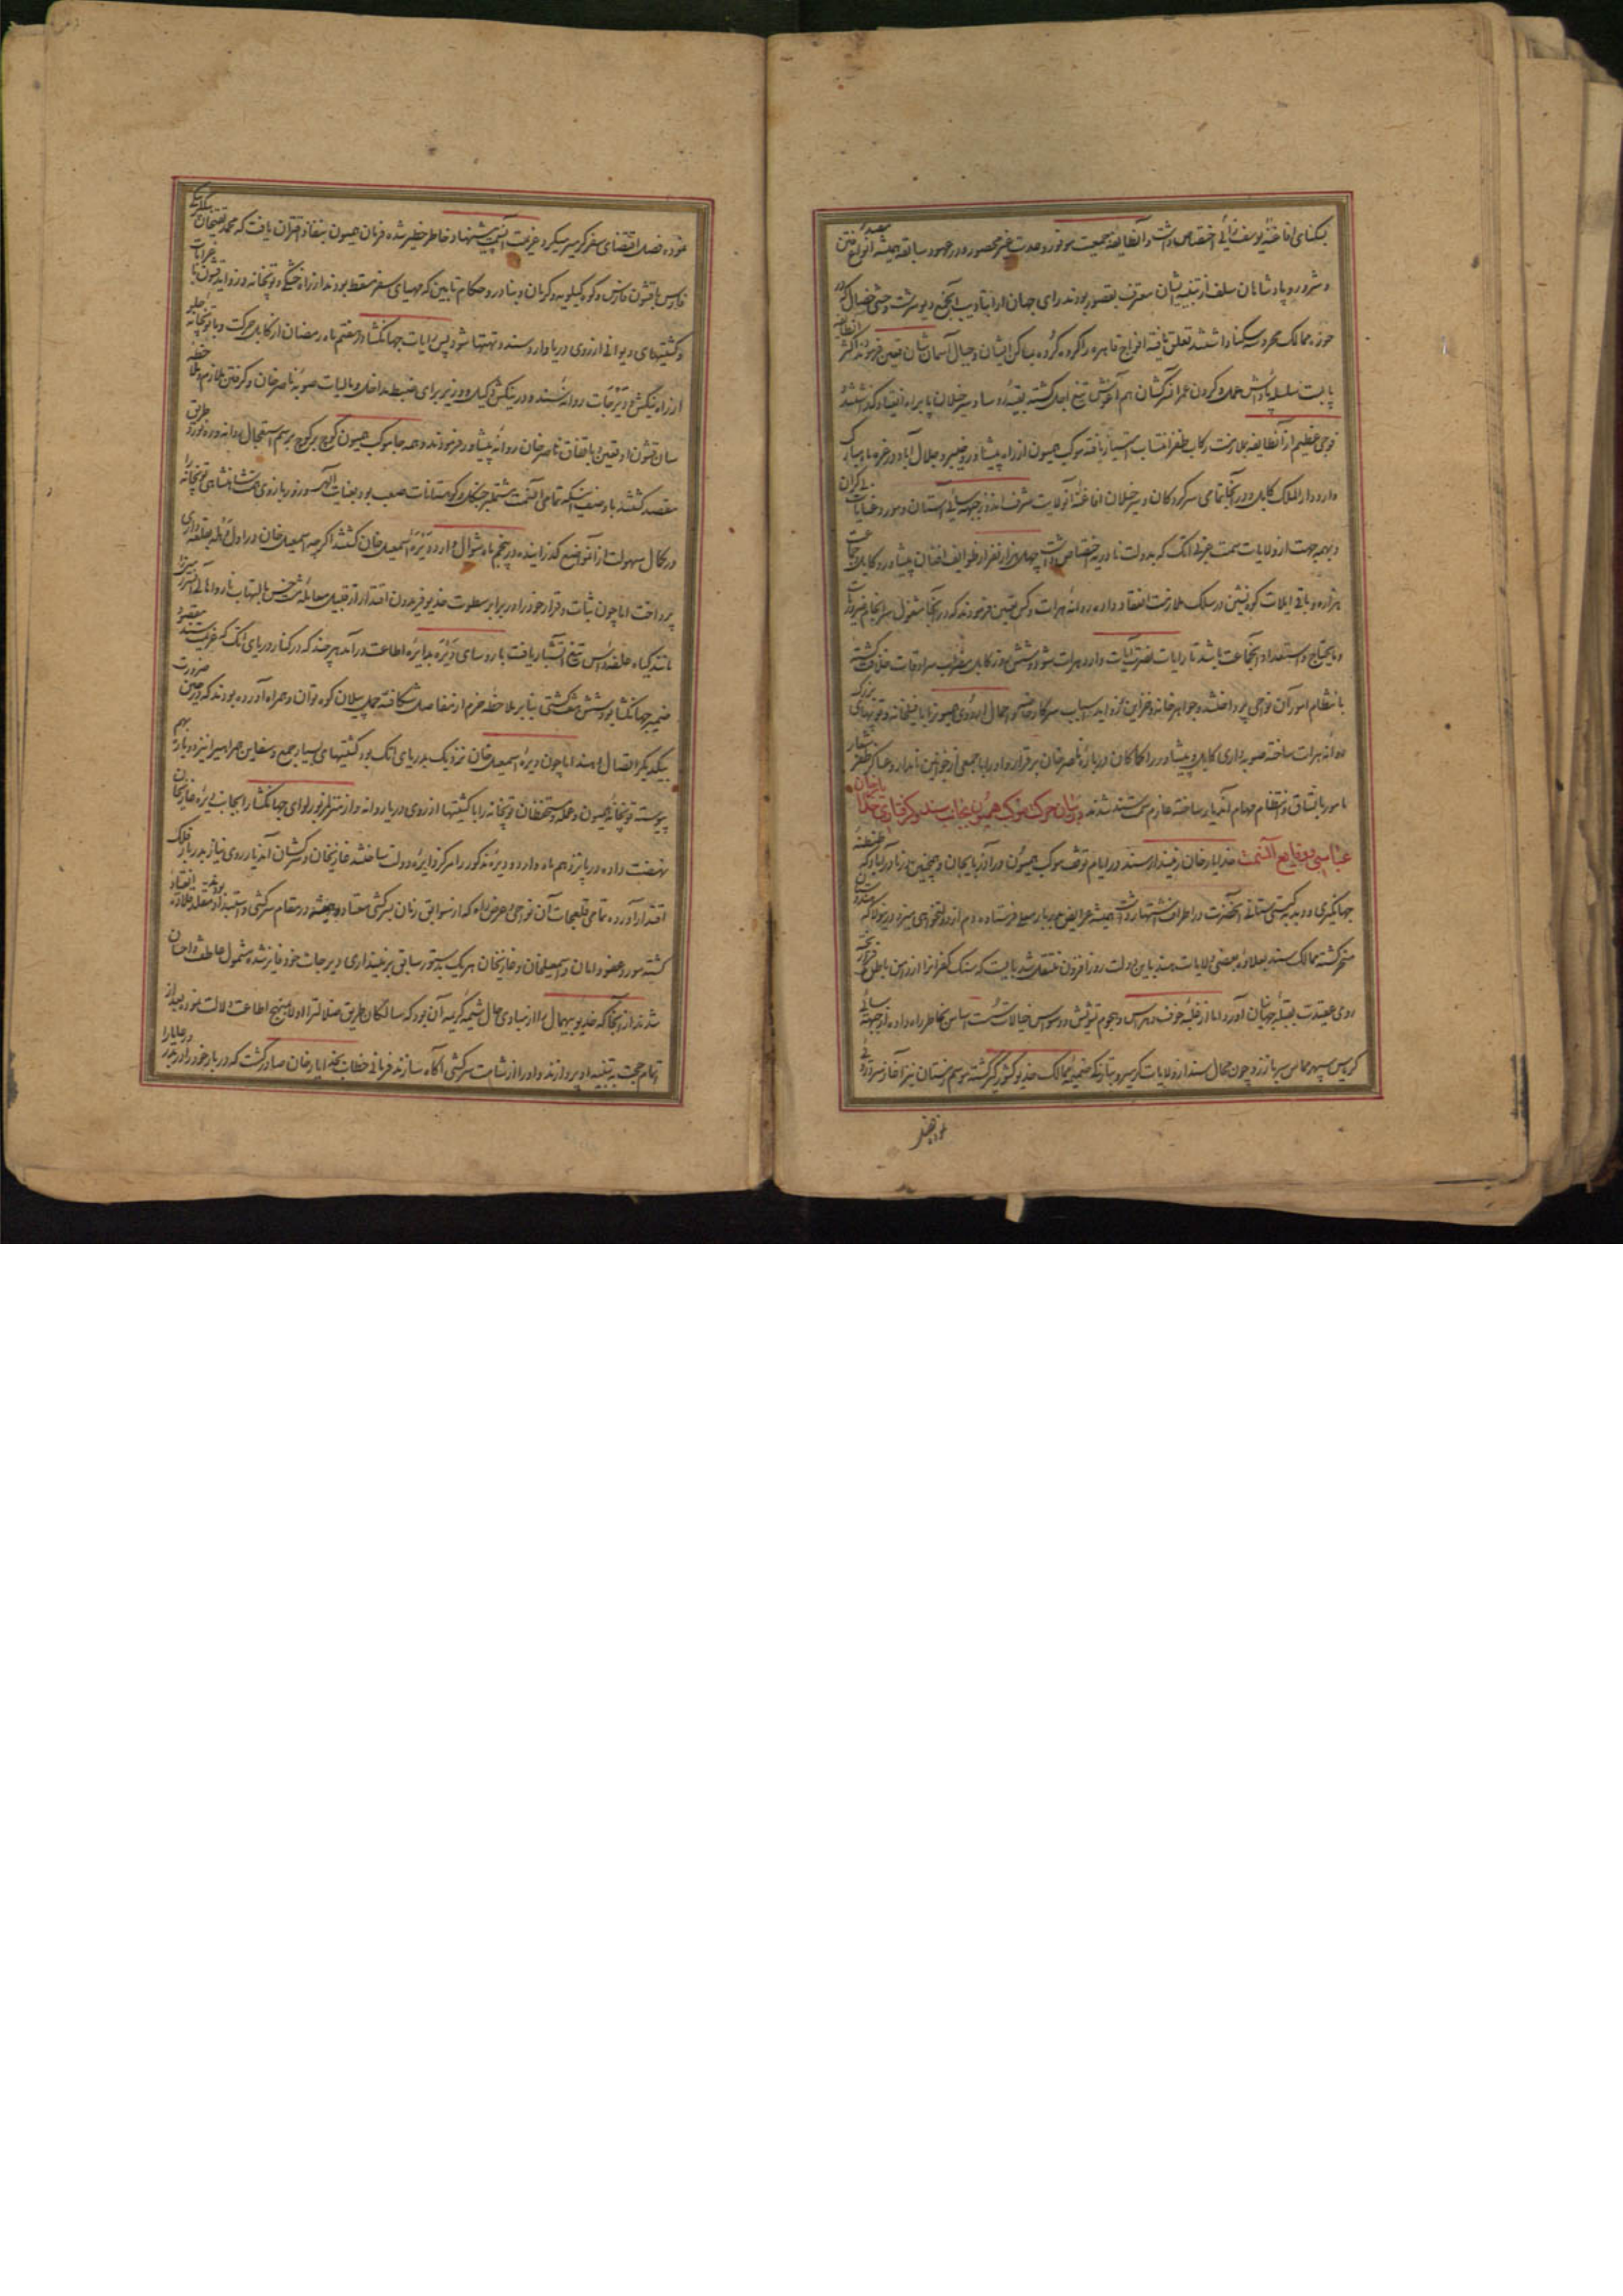 بسکنای افاغنه یوسف زائی اختصاص داشت و آنطایفه جمعیت موفور و عدت غیر محصور دارند و در عهود سابقه همیشه انواع فتن
و شرور و پادشاهان سلف از تنبیه ایشان معترف بقصور بودند رای جهان آرا بتادیب آنجمع دیو سرشت وحشی خصال که در
حوزه ممالک محروسه سکنا داشتند تعلق یافته افواج قاهره را گروه گروه بمساکن ایشان و جبال آسمان شان تعیین فرمودند اکثر آنطایفه
پای بست سلسله پاداش عمل و گردن عمر اکثر گشان هم آغوش تیغ اجل گشته بقیه رؤسا و سرخیلان پا براه انقیاد گذاشتند
فوجی عظیم از آنطایفه بملازمت رکاب ظفر انتساب اختیار یافته موکب همیون از راه پیشاور و خیبر و جلال آباد در غره ماه مبارک
وارد دار الملک کابل و در آنجا تمامی سرکردگان و سرخیلان افاغنه آنولایت شرف اندوز جبهه سائی آستان و مورد عنایات بی کران
و بهمه جهت از ولایات سمت غربی اتک که بدولت نادریه اختصاص داشت چهل هزار نفر از طوایف افغان پیشاور و کابل و جماعت
هزاره و باقی ایلات کوه نشین در سلک ملازمت انعقاد داده روانه هرات و کس تعیین فرمودند که در آنجا مشغول سرانجام ضروریات
و مایحتاج و استعداد آنجماعت باشد تا رایات نصرت آیات وارد هرات شود و شش روز کابل مضرب سرادقات خلافت گشته
بانتظام امور آن نواحی پرداختند و جواهر خانه و خزاین و زواید اسباب سرکار خاصه و احمال اردوی همیون را با فیلخانه و توپهای بزرک
روانه هرات ساخته صوبه داری کابل و پیشاور را کماکان درباره ناصر خان برقرار و او را با جمعی از خوانین نامدار و عساکر ظفر شعار
مامور باتساق و انتظام مهام آندیار ساخته عازم سمت سند شدند در بیان حرکت موکب همیون بجانب سند و گرفتاری خدا یار خان
عباسی و وقایع آنسمت خدایار خان زمیندار سند در ایام توقف موکب همیون در آذربایجان و همچنین در نادرآباد که طنطنه
جهانگیری و دبدبه گیتی ستانی آنحضرت در اطراف اشتهار داشت همیشه عرایض بدربار معلی فرستاده دم از دولتخواهی میزد در ینولا که
منجر گشته ممالک سند بعلاوه بعضی ولایات هند باین دولت روز افزون منتقل شد بایست که سنک کفرانرا از دامن باطل
روی عقیدت بقبله جهانیان آورد اما از غلبه خوف و هراس و هجوم تشویش و وسواس خیالات سست اساس بخاطر راه داده از جبهه سائی
کریاس سپهر مماس سر باز زد و چون محال سند از ولایات گرمسیر و بتازگی ضمیمه ممالک خدیو کشورگیر گشته موسم زمستان نیز آغاز سردی
نموده فصل
نموده فصل اقتضای سفر گرمسیر میکرد عزیمت آنسمت پیشنهاد خاطر خطیر شده فرمان همیون بنفاذ اقتران یافت که محمد تقیخان بیگلربیگی
فارس با قشون فارس و کوه کیلویه و کرمان و بنادر و حکام تابین که مهیای سفر مسقط بودند از راه خشکی و توپخانه و زواید قشون با غرابات
و کشتیهای دیوانی از روی دریا وارد سند و تهتها شود پس رایات جهانگشا در هفتم ماه رمضان از کابل حرکت و با توپخانه جلو
از راه بنگش و دیره جات روانه شدند و در بنگش وکیل و وزیر برای ضبط مداخل و مالیات صوبه ناصر خان و گرفتن ملازم و ملاحظه
سان قشون او تعیین و باتفاق ناصر خان روانه پیشاور فرمودند و همه جا موکب همیون کوچ بر کوچ برسم استعجال روانه و ره نورد طریق
مقصد گشتند با وصف اینکه تمامی آنسمت مشتمل بر جنگل و کوهستانات صعب بود بعنایت آلهی و زور بازوی همت شاهنشاهی توپخانه را
در کمال سهولت از آنمواضع گذرانیده در پنجم ماه شوال وارد دیره اسمعیل خان گشتند اگرچه اسمعیل خان در اول وهله بقلعه داری
پرداخت اما چون ثبات و قرار خود را در برابر سطوت خدیو فریدون اقتدار از قبیل معامله مشت خس با التهاب نار و اهالی آن سرزمین
مانند گیاه علفه داس تیغ آتشبار یافت با رؤسای دیره بدایره اطاعت درآمد هر چند که در کنار دریای اتک که عزیمت سند مضمر
ضمیر جهانگشا بود شش هفت کشتی بنا بر ملاحظه حزم از مفاصل شکافته حمل پیلان کوه توان و همراه آورده بودند که در حین ضرورت
بیکدیگر اتصال دهند اما چون دیره اسمعیل خان نزدیک بدریای اتک بود کشتیهای بسیار جمع و سفاین همراه را نیز دوباره بهم
پیوسته توپخانه همیون و عمله و مستحفظان توپخانه را با کشتیها از روی دریا روانه و از منزل مزبور لوای جهانگشا را بجانب دیره غازیخان
نهضت داده در پانزدهم ماه وارد و دیره مذکور را مرکز دایره دولت ساختند غازیخان و سرکشان آندیار روی نیاز بدربار فلک
اقتدار آورده تمامی قلعجات آن نواحی و عرض راه که از سوابق زمان بسرکشی معتاد و همیشه در مقام سرکشی و استبداد
گشته مورد عفو و امان و اسمعیلخان و غازیخان هر یک بدستور سابق بزمینداری دیره جات خود فایز شده مشمول عاطفت و احسان
شدند از آنجا که خدیو بیهمال را از مبادی حال شیمه کریمه آن بود که سالکان طریق ضلالترا اولا بمنهج اطاعت دلالت نموده بعد از
اتمام حجت بتنبیه او پردازند و او را از شامت سرکشی آگاه سازند فرمانی خطاب بخدایار خان صادر گشت که